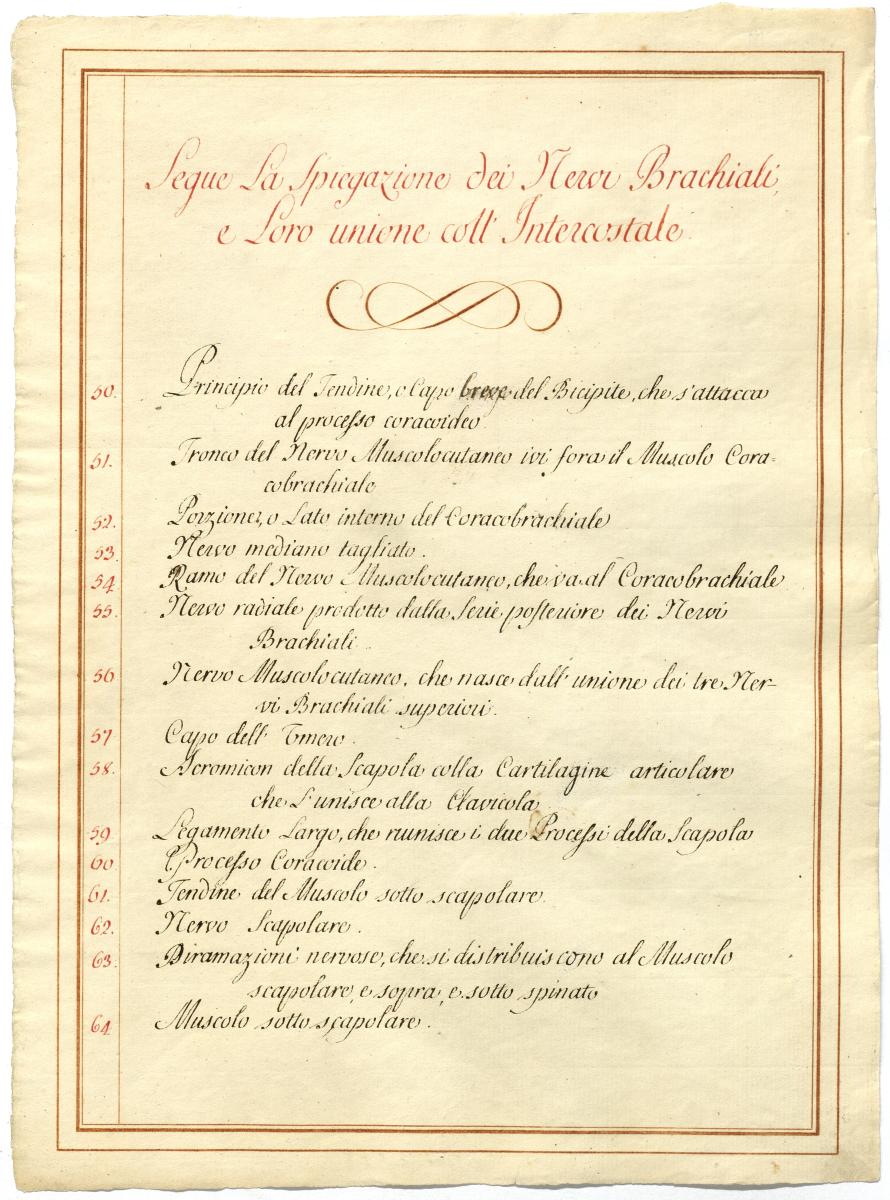 Segue La Spiegazione dei Nervi Brachiali,
e Loro unione coll' Intercostale.
50. Principio del Tendine, o Capo breve del Bicipite, che s'attacca
al processo coracoideo
51. Tronco del Nervo Muscolocutaneo ivi fora il Muscolo Cora=
cobrachiale
52. Porzione, o Lato interno del Coracobrachiale
53. Nervo mediano tagliato.
54 Ramo del Nervo Muscolocutaneo, che va al Coracobrachiale
55. Nervo radiale prodotto dalla Serie posteriore dei Nervi
Brachiali.
56 Nervo Muscolocutaneo, che nasce dall' unione dei tre Ner-
vi Brachiali superiori.
57 Capo dell' Omero.
58. Acromicon della Scapola colla Cartilagine articolare
che s'unisce alla Clavicola
59. Legamento Largo, che riunisce i due Processi della Scapola
60 Processo Coracoide.
61. Tendine del Muscolo sotto scapolare.
62. Nervo Scapolare.
63. Diramazioni nervose, che si distribuiscono al Muscolo
scapolare, e sopra, e sotto spinato
64 Muscolo sotto scapolare.